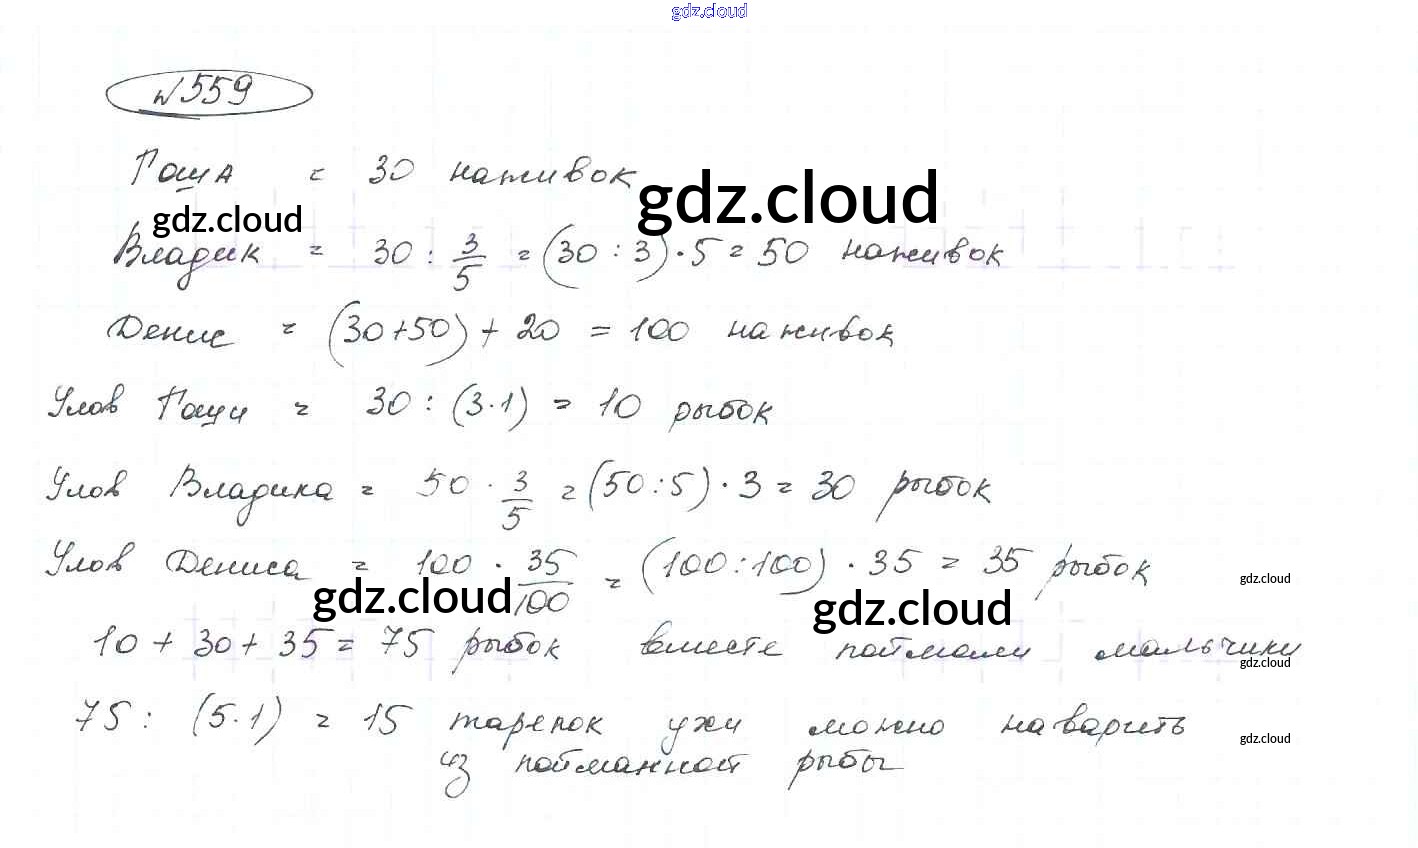 gdz.cloud
№559
Гоша = 30 наживок
gdz.cloud
gdz.cloud
Владик = 30 : 3/5 = (30 : 3) · 5 = 50 наживок
Денис = (30+50) + 20 = 100 наживок
Улов Гоши = 30 : (3·1) = 10 рыбок
Улов Владика = 50 · 3/5 = (50:5) · 3 = 30 рыбок
Улов Дениса = 100 · 35/100 = (100:100) · 35 = 35 рыбок
gdz.cloud
gdz.cloud
gdz.cloud
10 + 30 + 35 = 75 рыбок вместе поймали мальчики
gdz.cloud
75 : (5·1) = 15 тарелок ухи можно наварить
gdz.cloud
из пойманной рыбы